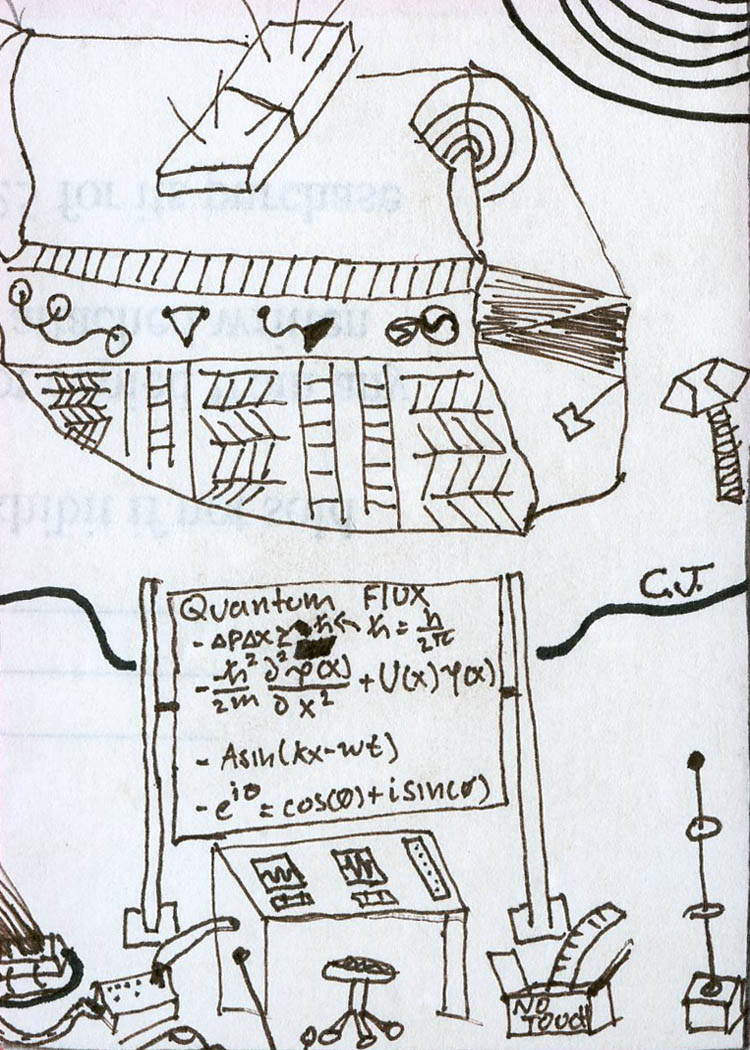 C.J.
Quantum Flux
- ΔPΔX ≥ ħ ← ħ = h/2π
- -ħ²/2m ∂²ψ(x)/∂x² + U(x)ψ(x)
- Asin(kx-wt)
- e^iθ = cos(θ)+isin(θ)
NO
TOUCH